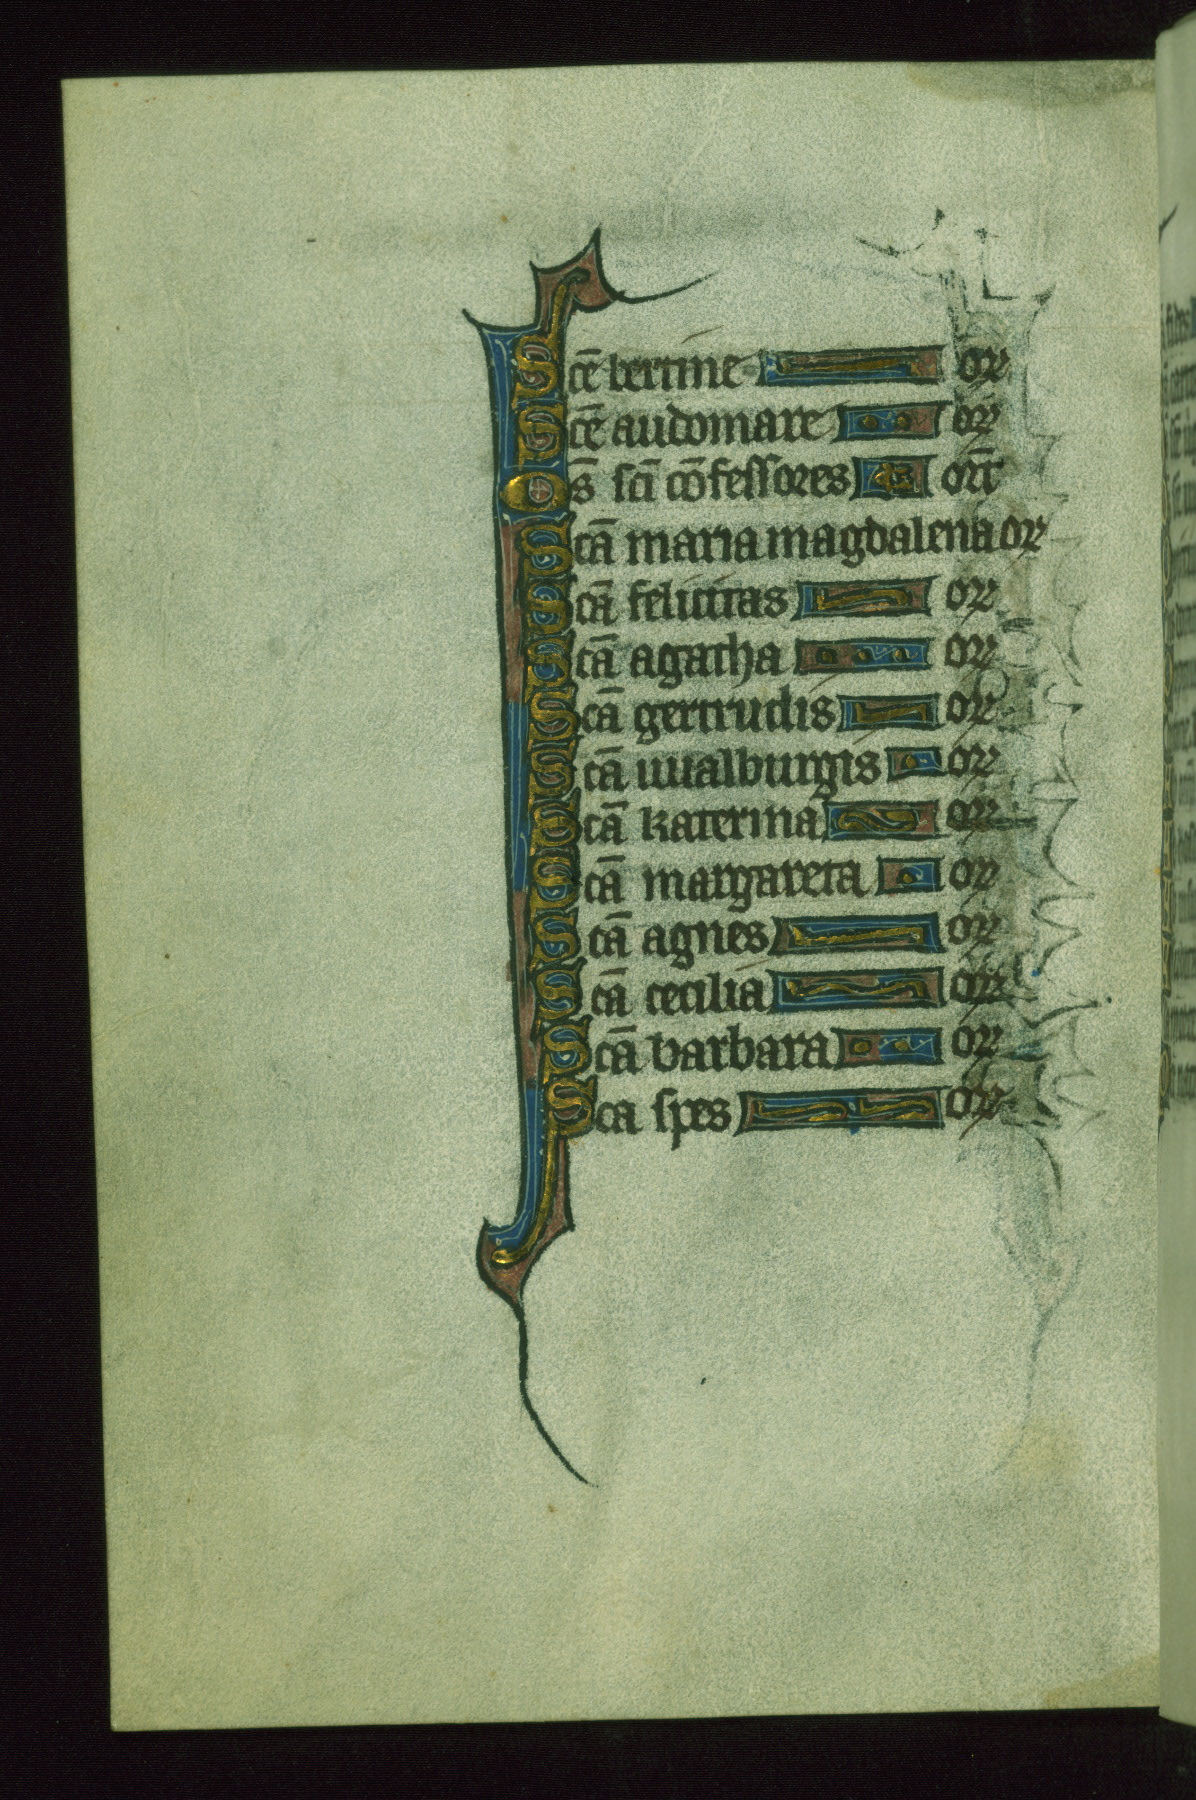 Sce᷄ bertine or
Sce᷄ audomare or
Os̄ sci᷄ cōfessores orīt
Scā maria magdalena or
Scā felicitas or
Scā agatha or
Scā gertrudis or
Scā uualburgis or
Scā katerina or
Scā margareta or
Scā agnes or
Scā cecilia or
Scā barbara or
Sca spes or